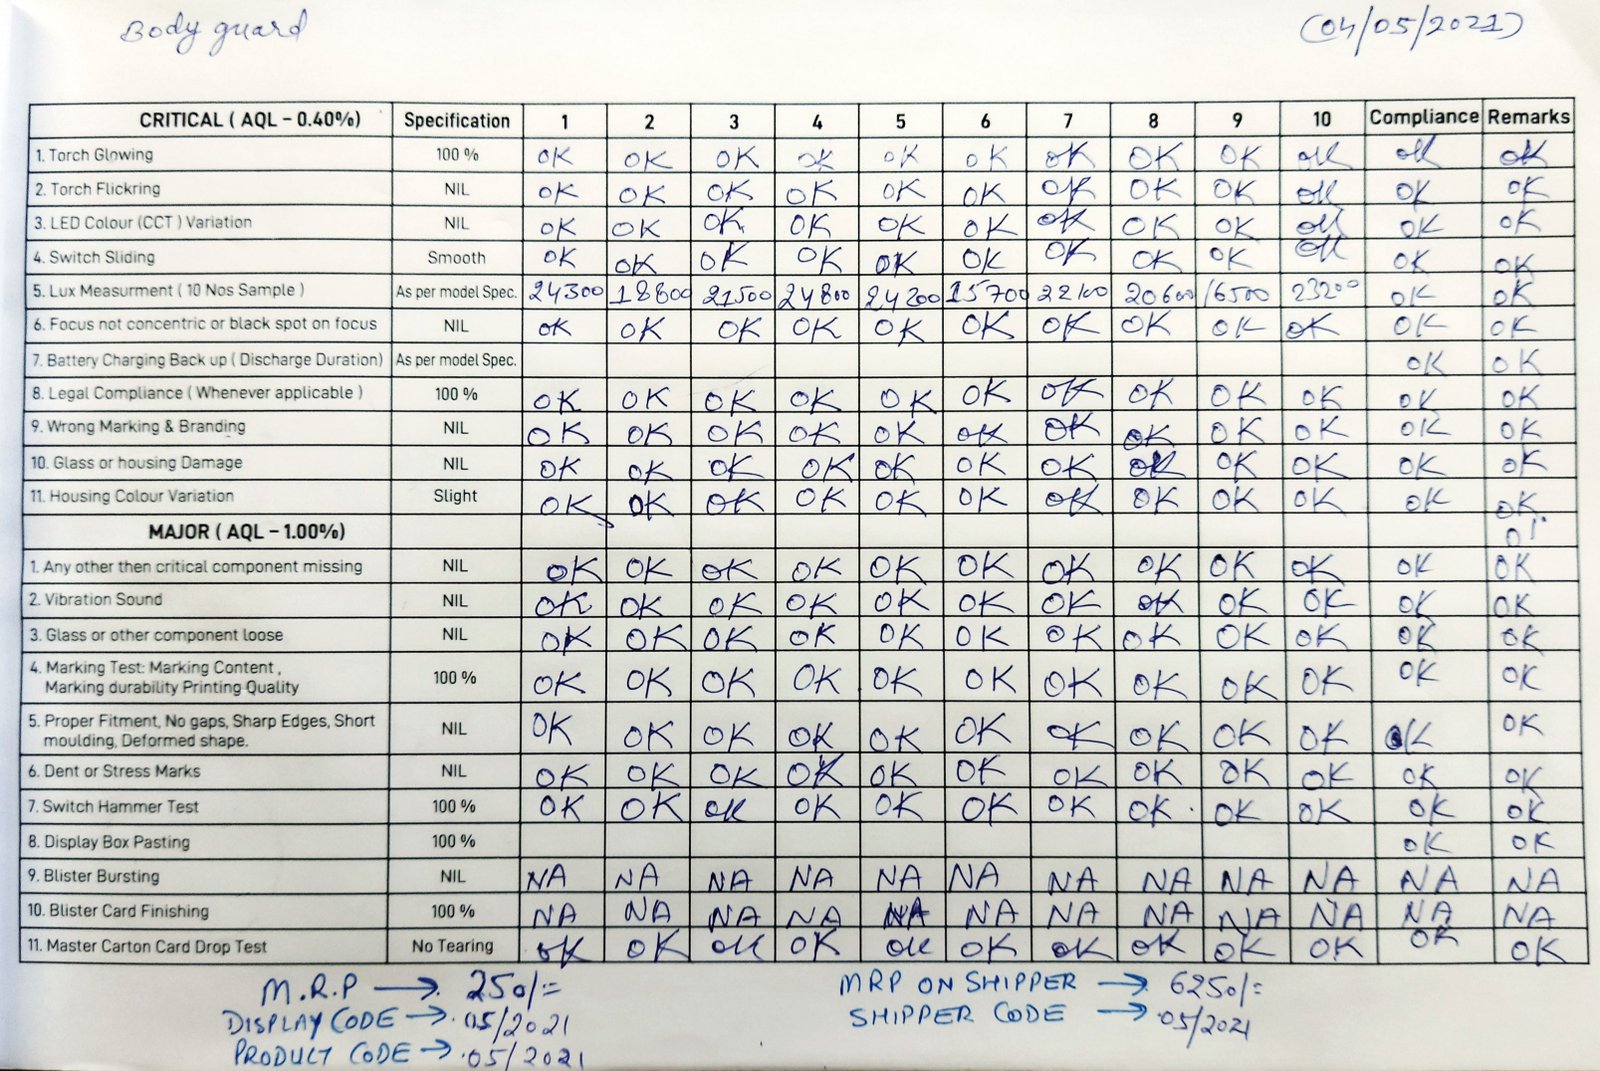 Body guard (04/05/2021)
CRITICAL ( AQL - 0.40%) Specification 1 2 3 4 5 6 7 8 9 10 Compliance Remarks
1. Torch Glowing 100 % OK OK OK OK OK OK OK OK OK OK OK OK
2. Torch Flickring NIL OK OK OK OK OK OK OK OK OK OK OK OK
3. LED Colour (CCT ) Variation NIL OK OK OK OK OK OK OK OK OK OK OK OK
4. Switch Sliding Smooth OK OK OK OK OK OK OK OK OK OK OK OK
5. Lux Measurment ( 10 Nos Sample ) As per model Spec. 24300 18800 21500 24800 24200 15700 22100 20600 16500 23200 OK OK
6. Focus not concentric or black spot on focus NIL OK OK OK OK OK OK OK OK OK OK OK OK
7. Battery Charging Back up ( Discharge Duration) As per model Spec. OK OK
8. Legal Compliance ( Whenever applicable ) 100 % OK OK OK OK OK OK OK OK OK OK OK OK
9. Wrong Marking & Branding NIL OK OK OK OK OK OK OK OK OK OK OK OK
10. Glass or housing Damage NIL OK OK OK OK OK OK OK OK OK OK OK OK
11. Housing Colour Variation Slight OK OK OK OK OK OK OK OK OK OK OK OK
MAJOR ( AQL - 1.00%)
1. Any other then critical component missing NIL OK OK OK OK OK OK OK OK OK OK OK OK
2. Vibration Sound NIL OK OK OK OK OK OK OK OK OK OK OK OK
3. Glass or other component loose NIL OK OK OK OK OK OK OK OK OK OK OK OK
4. Marking Test: Marking Content ,
Marking durability Printing Quality 100 % OK OK OK OK OK OK OK OK OK OK OK OK
5. Proper Fitment, No gaps, Sharp Edges, Short
moulding, Deformed shape. NIL OK OK OK OK OK OK OK OK OK OK OK OK
6. Dent or Stress Marks NIL OK OK OK OK OK OK OK OK OK OK OK OK
7. Switch Hammer Test 100 % OK OK OK OK OK OK OK OK OK OK OK OK
8. Display Box Pasting 100 % OK OK
9. Blister Bursting NIL NA NA NA NA NA NA NA NA NA NA NA NA
10. Blister Card Finishing 100 % NA NA NA NA NA NA NA NA NA NA NA NA
11. Master Carton Card Drop Test No Tearing OK OK OK OK OK OK OK OK OK OK OK OK
M.R.P → 250/= MRP ON SHIPPER → 6250/=
DISPLAY CODE → 05/2021 SHIPPER CODE → 05/2021
PRODUCT CODE → 05/2021